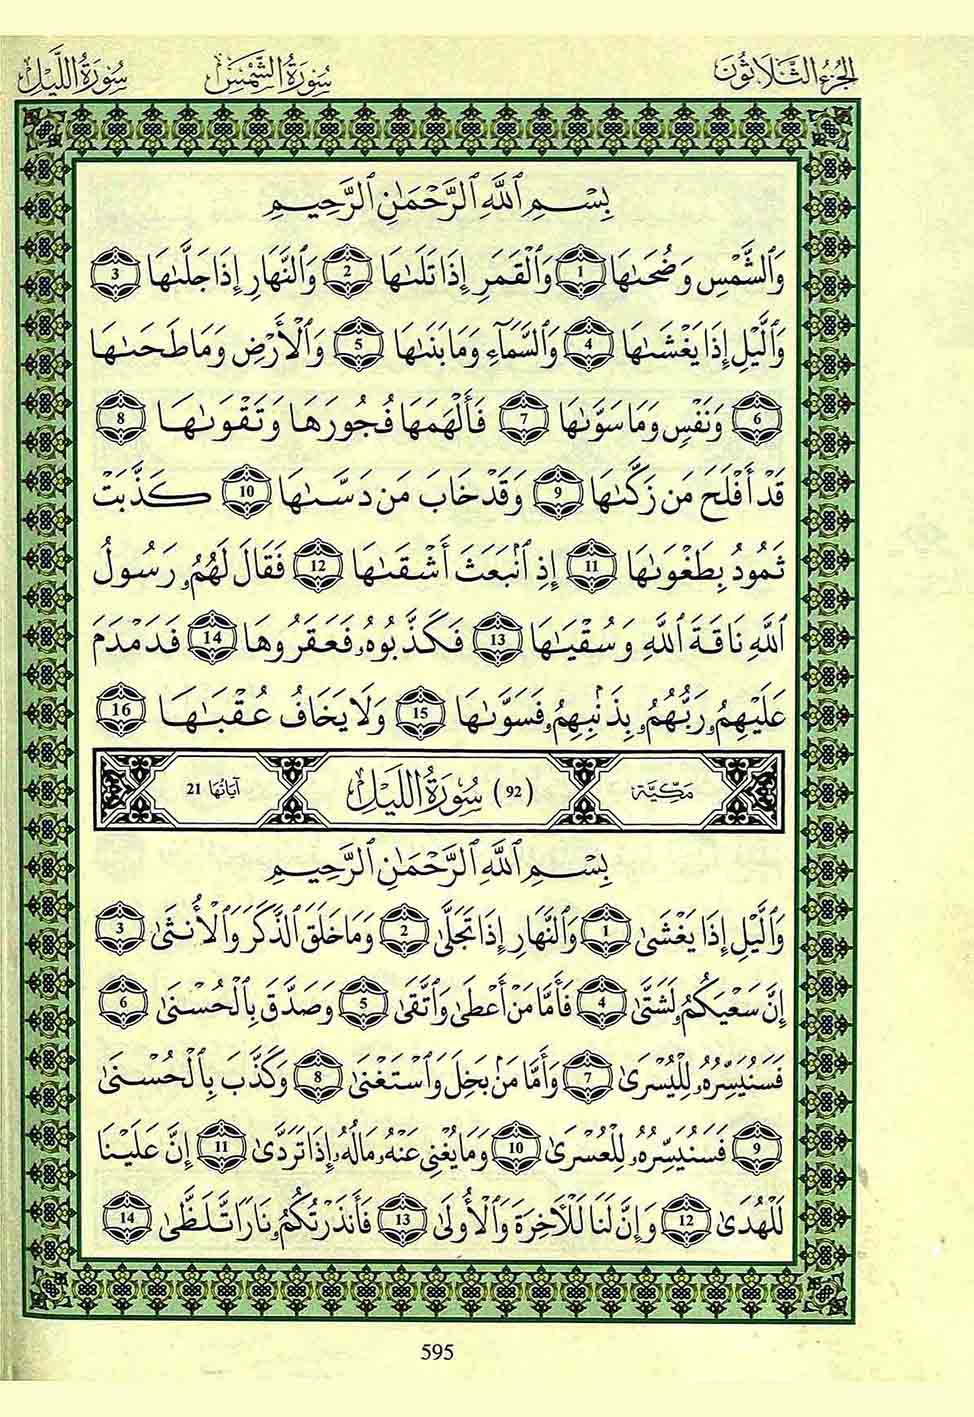 الجُزْءُ الثَّلَاثُونَ سُورَةُ الشَّمْسِ سُورَةُ اللَّيْلِ
بِسْمِ ٱللَّهِ ٱلرَّحْمَٰنِ ٱلرَّحِيمِ
وَٱلشَّمْسِ وَضُحَىٰهَا 1 وَٱلْقَمَرِ إِذَا تَلَىٰهَا 2 وَٱلنَّهَارِ إِذَا جَلَّىٰهَا 3
وَٱلَّيْلِ إِذَا يَغْشَىٰهَا 4 وَٱلسَّمَآءِ وَمَا بَنَىٰهَا 5 وَٱلْأَرْضِ وَمَا طَحَىٰهَا
6 وَنَفْسٍ وَمَا سَوَّىٰهَا 7 فَأَلْهَمَهَا فُجُورَهَا وَتَقْوَىٰهَا 8
قَدْ أَفْلَحَ مَن زَكَّىٰهَا 9 وَقَدْ خَابَ مَن دَسَّىٰهَا 10 كَذَّبَتْ
ثَمُودُ بِطَغْوَىٰهَا 11 إِذِ ٱنۢبَعَثَ أَشْقَىٰهَا 12 فَقَالَ لَهُمُۥ رَسُولُ
ٱللَّهِ نَاقَةَ ٱللَّهِ وَسُقْيَٰهَا 13 فَكَذَّبُوهُۥ فَعَقَرُوهَا 14 فَدَمْدَمَ
عَلَيْهِمُۥ رَبُّهُمُۥ بِذَنۢبِهِمُۥ فَسَوَّىٰهَا 15 وَلَا يَخَافُ عُقْبَٰهَا 16
مَكِّيَّة (92) سُورَةُ اللَّيْلِ آيَاتُهَا 21
بِسْمِ ٱللَّهِ ٱلرَّحْمَٰنِ ٱلرَّحِيمِ
وَٱلَّيْلِ إِذَا يَغْشَىٰ 1 وَٱلنَّهَارِ إِذَا تَجَلَّىٰ 2 وَمَا خَلَقَ ٱلذَّكَرَ وَٱلْأُنثَىٰ 3
إِنَّ سَعْيَكُمُۥ لَشَتَّىٰ 4 فَأَمَّا مَنْ أَعْطَىٰ وَٱتَّقَىٰ 5 وَصَدَّقَ بِٱلْحُسْنَىٰ 6
فَسَنُيَسِّرُهُۥ لِلْيُسْرَىٰ 7 وَأَمَّا مَنۢ بَخِلَ وَٱسْتَغْنَىٰ 8 وَكَذَّبَ بِٱلْحُسْنَىٰ
9 فَسَنُيَسِّرُهُۥ لِلْعُسْرَىٰ 10 وَمَا يُغْنِى عَنْهُۥ مَالُهُۥ إِذَا تَرَدَّىٰ 11 إِنَّ عَلَيْنَا
لَلْهُدَىٰ 12 وَإِنَّ لَنَا لَلْآخِرَةَ وَٱلْأُولَىٰ 13 فَأَنذَرْتُكُمُۥ نَارًا تَّلَظَّىٰ 14
595